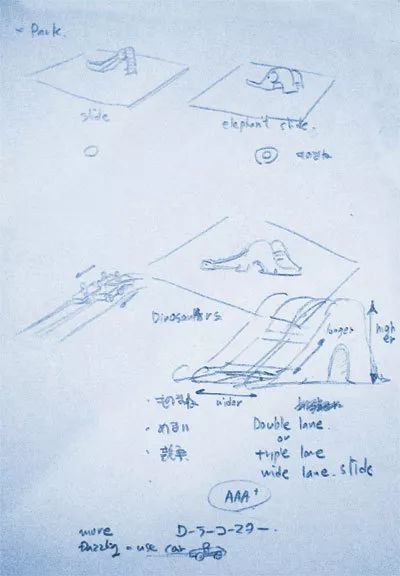 - Park.
slide
elephant slide.
Dinosaurs.
longer
higher
wider
・めまい
・競争
Double lane.
or
triple lane
wide lane. slide
AAA+
more
Dazzling = use car